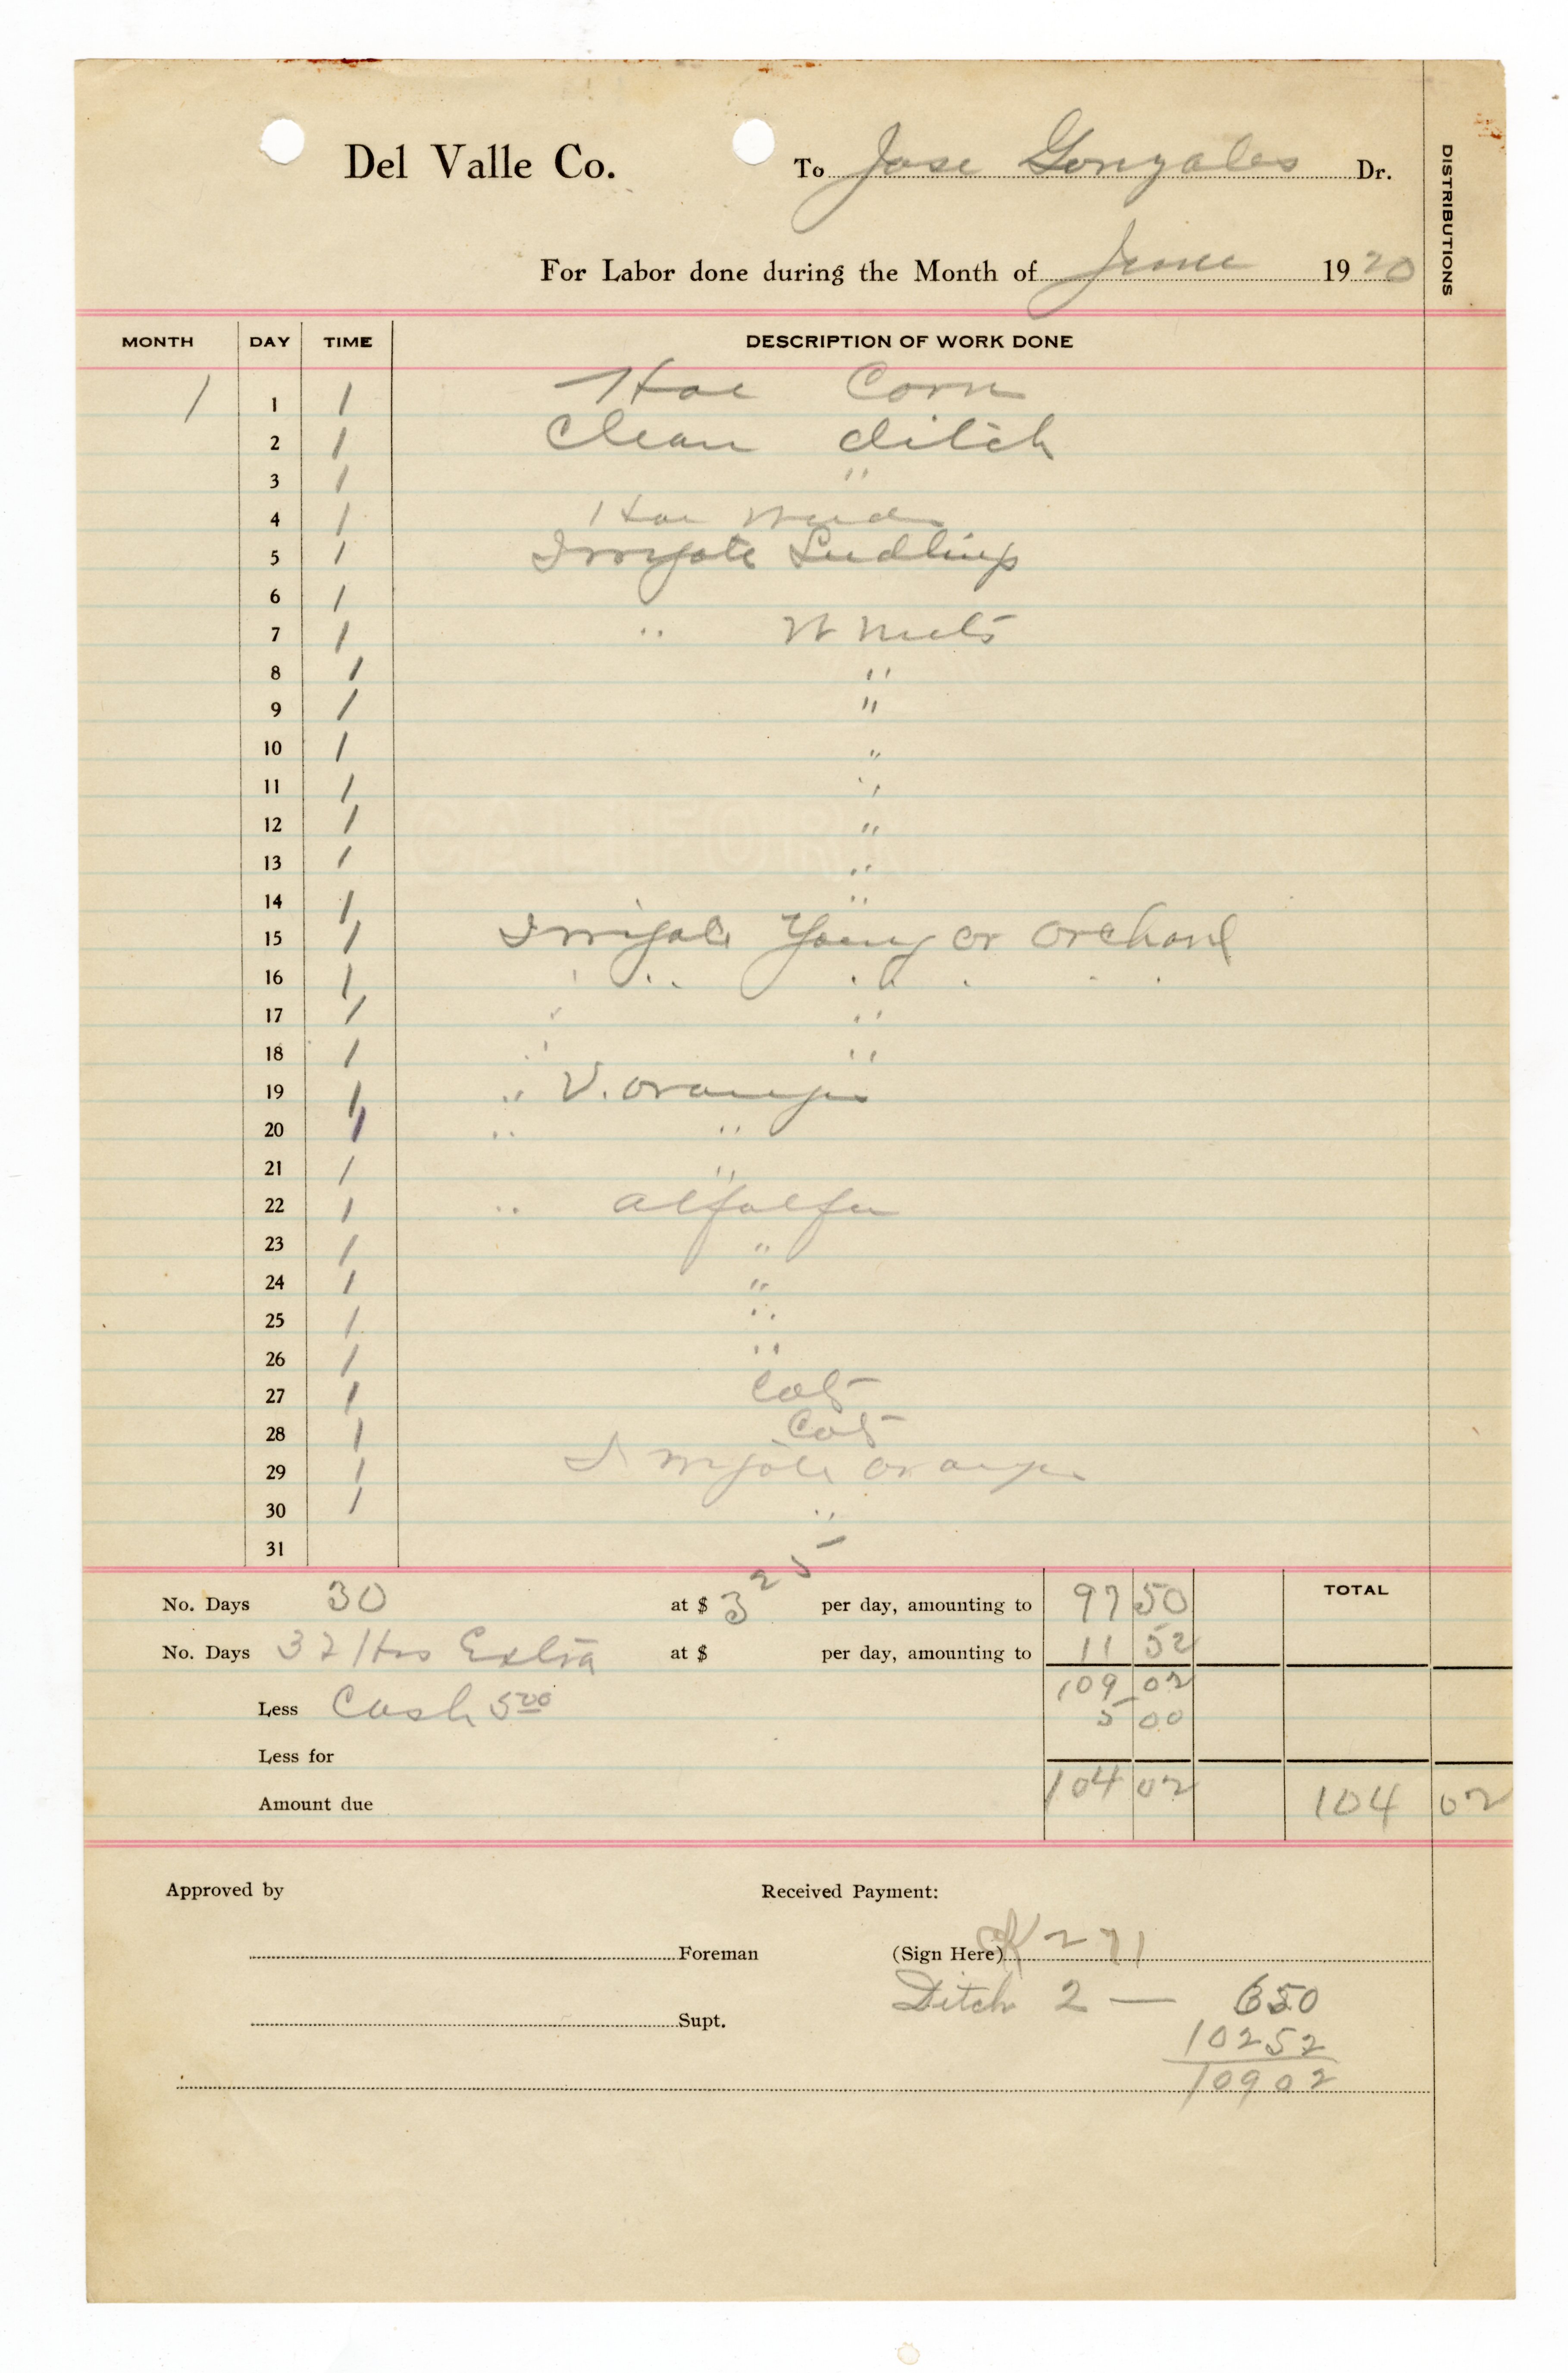 Del Valle Co. To Jose Gonzales Dr.
DISTRIBUTIONS
For Labor done during the Month of June 1920
MONTH DAY TIME DESCRIPTION OF WORK DONE
1 1 1 Hoe Corn
2 1 Clean ditch
3 1 "
4 1 Hoe Weeds
5 1 Irrigate Seedlings
6 1
7 1 " W Nuts
8 1 "
9 1 "
10 1 "
11 1 "
12 1 "
13 1 "
14 1 "
15 1 Irrigate Young or orchard
16 1 " " " "
17 1 " "
18 1 " "
19 1 " V. oranges
20 1 " "
21 1 "
22 1 " alfalfa
23 1 "
24 1 "
25 1 "
26 1 "
27 1 Cots
28 1 Cots
29 1 Irrigate oranges
30 1 "
31
TOTAL
No. Days 30 at $ 3 25 per day, amounting to 97 50
No. Days 32 Hrs Extra at $ per day, amounting to 11 52
109 02
Less Cash 5 00 5 00
Less for
Amount due 104 02 104 02
Approved by Received Payment:
Foreman (Sign Here) CK 271
Ditch 2 — 650
Supt.
10252
10902